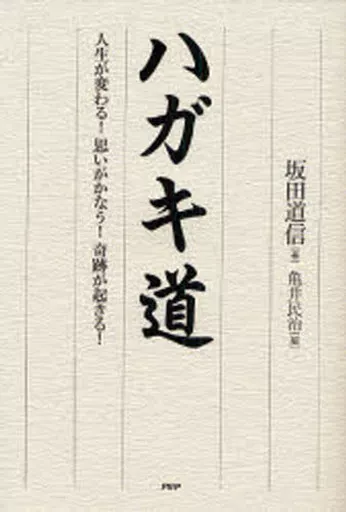 坂田道信[著] 亀井民治[編]
ハガキ道
人生が変わる！思いがかなう！奇跡が起きる！
PHP